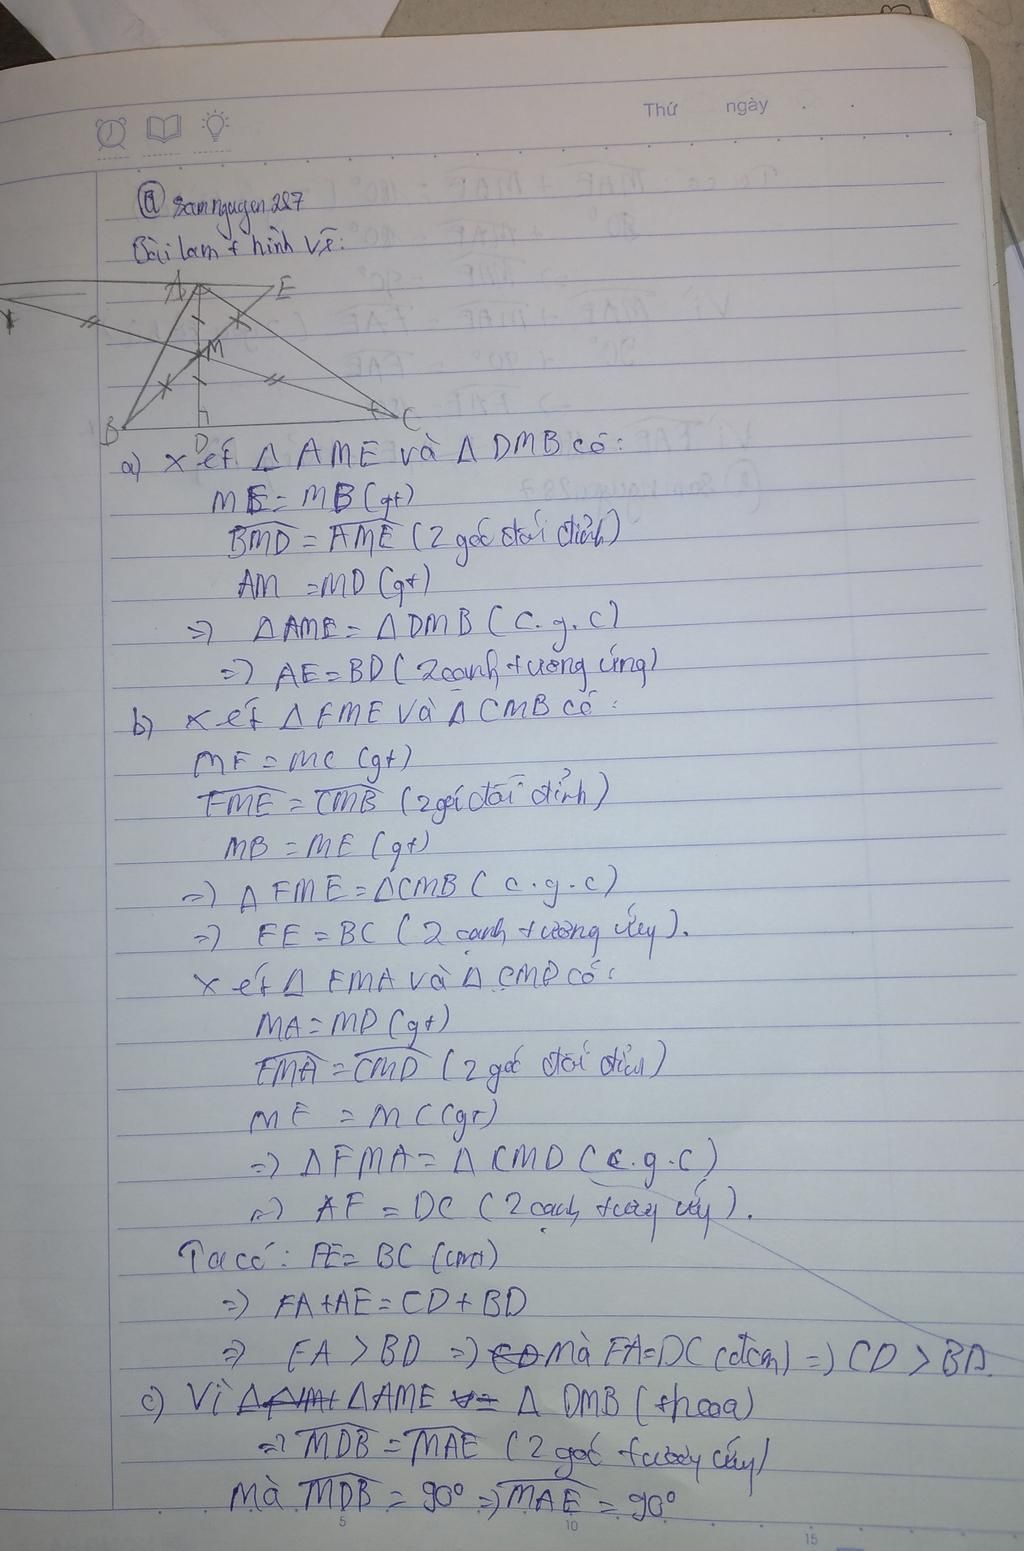 Thứ ngày
@ samnguyen287
Bài làm + hình vẽ:
A E
M
B D C
a) Xét Δ AME và Δ DMB có:
ME = MB (gt)
BMD = AME (2 góc đối đỉnh)
AM = MD (gt)
=> Δ AME = Δ DMB (c.g.c)
=> AE = BD (2 cạnh tương ứng)
b) Xét Δ FME và Δ CMB có:
MF = MC (gt)
FME = CMB (2 góc đối đỉnh)
MB = ME (gt)
=> Δ FME = Δ CMB (c.g.c)
=> FE = BC (2 cạnh tương ứng).
Xét Δ FMA và Δ CMD có:
MA = MD (gt)
FMA = CMD (2 góc đối đỉnh)
MF = MC (gt)
=> Δ FMA = Δ CMD (c.g.c)
=> AF = DC (2 cạnh tương ứng).
Ta có: FE = BC (cmt)
=> FA + AE = CD + BD
=> FA > BD => Mà FA = DC (đcm) => CD > BD.
c) Vì Δ AME = Δ DMB (theo a)
=> MDB = MAE (2 góc tương ứng)
Mà MDB = 90° => MAE = 90°
5 10 15